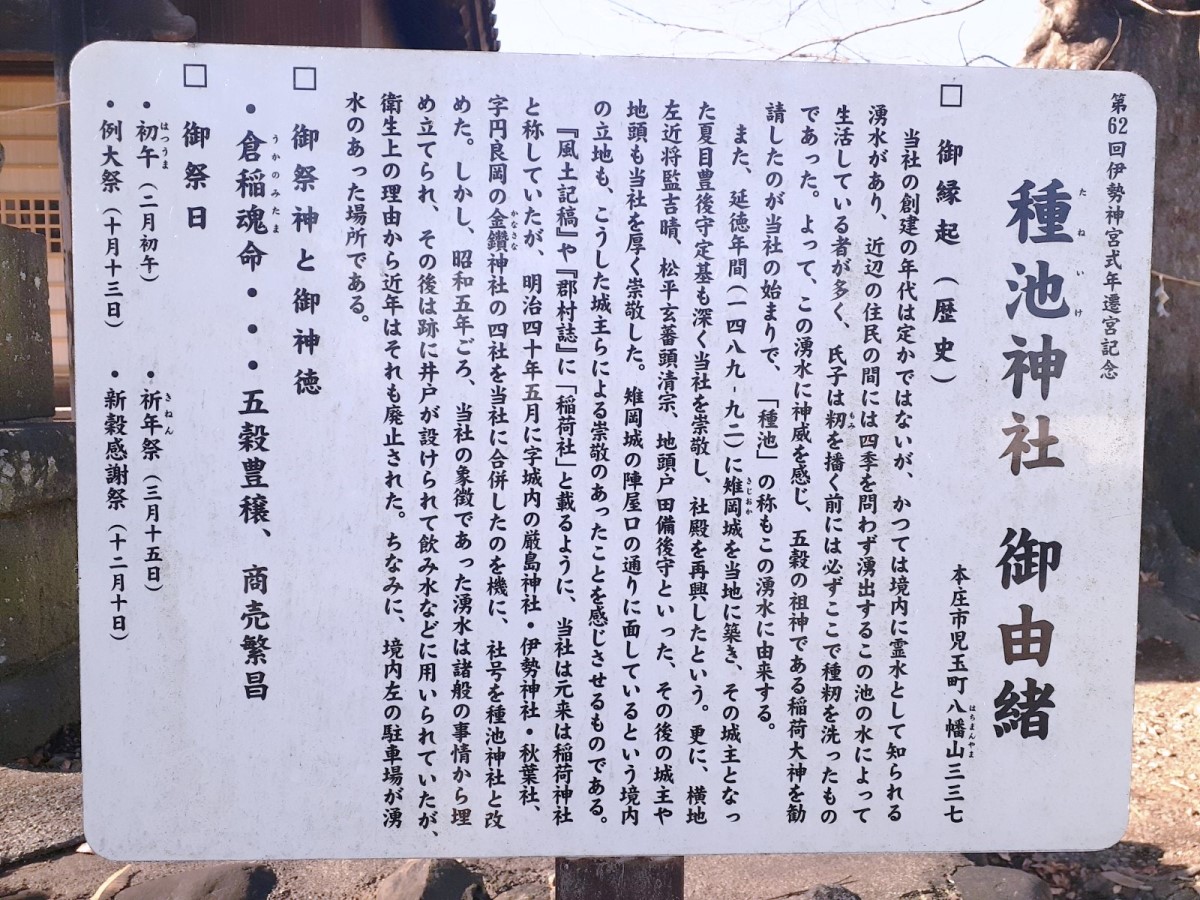 第62回伊勢神宮式年遷宮記念
種池神社 御由緒
たねいけ
本庄市児玉町八幡山三三七
はちまんやま
□ 御縁起(歴史)
当社の創建の年代は定かではないが、かつては境内に霊水として知られる
湧水があり、近辺の住民の間には四季を問わず湧出するこの池の水によって
生活している者が多く、氏子は籾を播く前には必ずここで種籾を洗ったもの
もみ
であった。よって、この湧水に神威を感じ、五穀の祖神である稲荷大神を勧
請したのが当社の始まりで、「種池」の称もこの湧水に由来する。
また、延徳年間(一四八九-九二)に雉岡城を当地に築き、その城主となっ
きじおか
た夏目豊後守定基も深く当社を崇敬し、社殿を再興したという。更に、横地
左近将監吉晴、松平玄蕃頭清宗、地頭戸田備後守といった、その後の城主や
地頭も当社を厚く崇敬した。雉岡城の陣屋口の通りに面しているという境内
の立地も、こうした城主らによる崇敬のあったことを感じさせるものである。
『風土記稿』や『郡村誌』に「稲荷社」と載るように、当社は元来は稲荷神社
と称していたが、明治四十年五月に字城内の厳島神社・伊勢神社・秋葉社、
字円良岡の金鑽神社の四社を当社に合併したのを機に、社号を種池神社と改
かなさな
めた。しかし、昭和五年ごろ、当社の象徴であった湧水は諸般の事情から埋
め立てられ、その後は跡に井戸が設けられて飲み水などに用いられていたが、
衛生上の理由から近年はそれも廃止された。ちなみに、境内左の駐車場が湧
水のあった場所である。
□ 御祭神と御神徳
・倉稲魂命・・・五穀豊穣、商売繁昌
うかのみたま
□ 御祭日
・初午(二月初午) ・祈年祭(三月十五日)
はつうま きねん
・例大祭(十月十三日) ・新穀感謝祭(十二月十日)